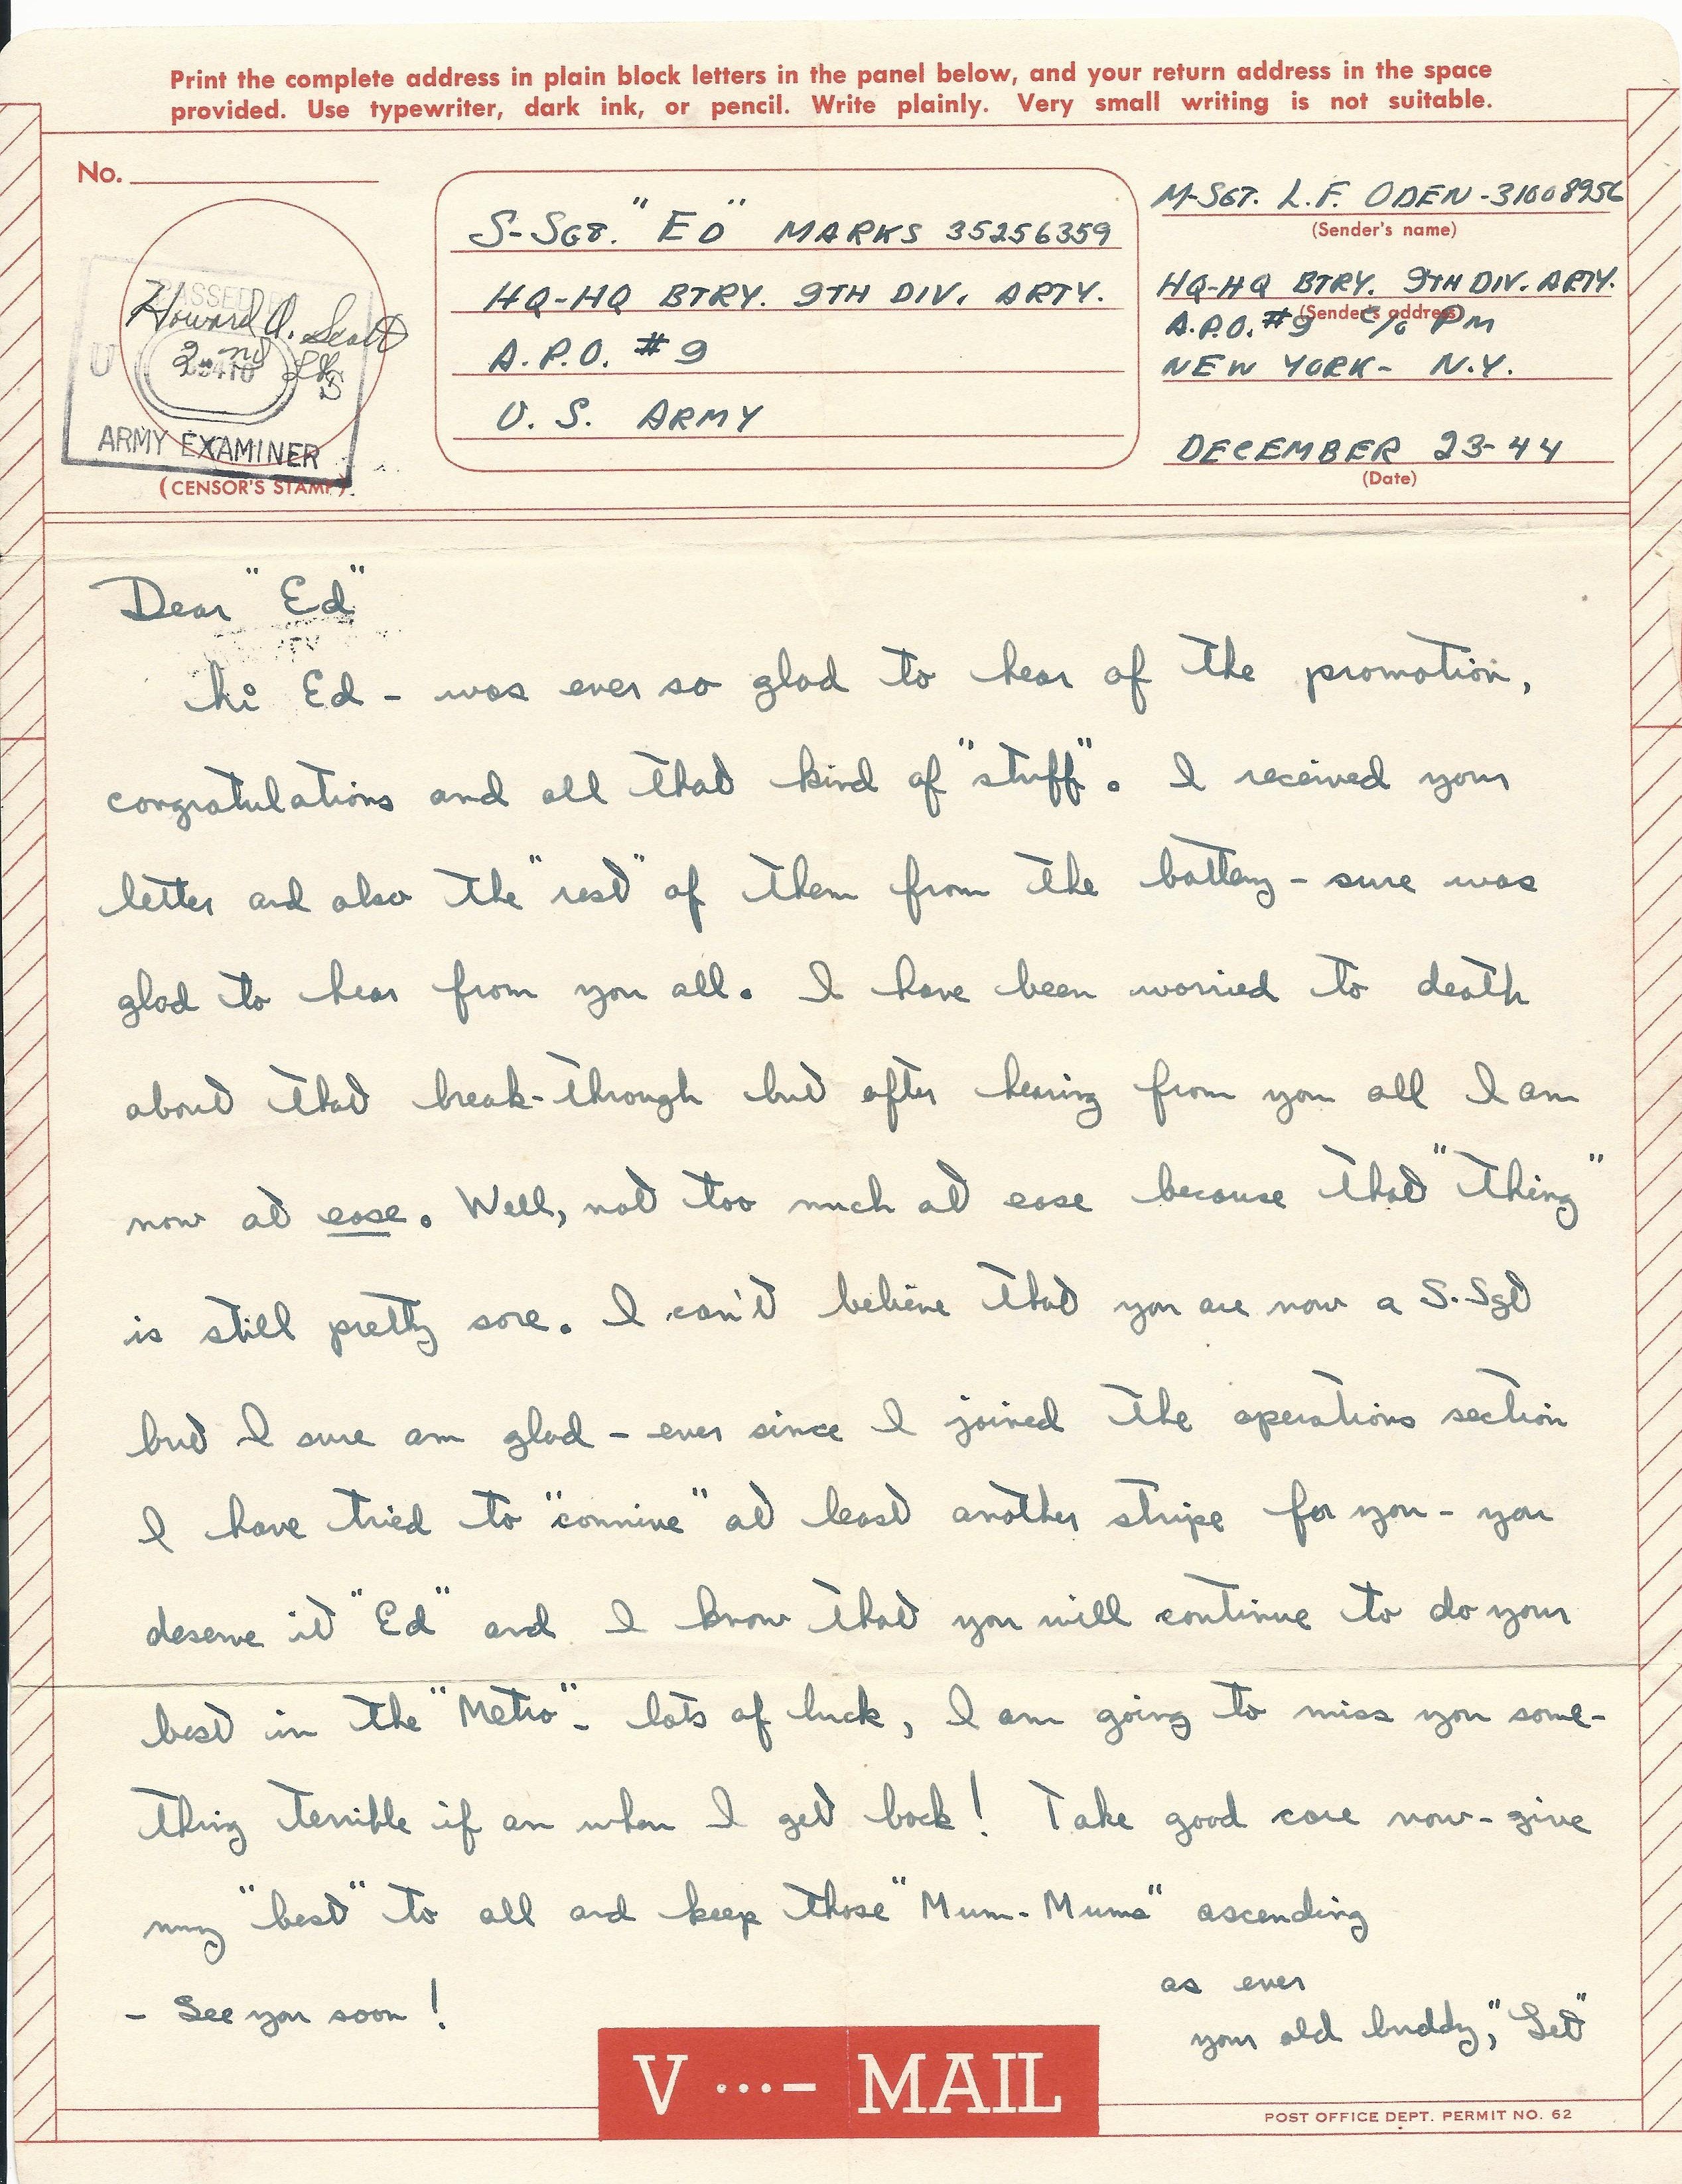 Print the complete address in plain block letters in the panel below, and your return address in the space
provided. Use typewriter, dark ink, or pencil. Write plainly. Very small writing is not suitable.
No.
PASSED BY
Howard A. Scott
2nd Lt
U
ARMY EXAMINER
(CENSOR'S STAMP)
S-SGT. "ED" MARKS 35256359
HQ-HQ BTRY. 9TH DIV. ARTY.
A.P.O. #9
U. S. ARMY
M-SGT. L.F. ODEN -31008956
(Sender's name)
HQ-HQ BTRY. 9TH DIV. ARTY.
(Sender's address)
A.P.O. #9 c/o PM
NEW YORK- N.Y.
DECEMBER 23-44
(Date)
Dear "Ed"
hi Ed - was ever so glad to hear of the promotion,
congratulations and all that kind of "stuff". I received your
letter and also the "rest" of them from the battery - sure was
glad to hear from you all. I have been worried to death
about that break-through but after hearing from you all I am
now at ease. Well, not too much at ease because that "thing"
is still pretty sore. I can't believe that you are now a S.Sgt
but I sure am glad - ever since I joined the operations section
I have tried to "connive" at least another stripe for you - you
deserve it "Ed" and I know that you will continue to do your
best in the "Metro". lots of luck, I am going to miss you some-
thing terrible if an when I get back! Take good care now - give
my "best" to all and keep those "Mum-Mums" ascending
- See you soon!
as ever
your old buddy,
V ...- MAIL
POST OFFICE DEPT. PERMIT NO. 62